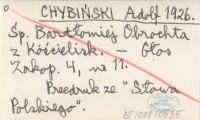 CHYBIŃSKI Adolf 1926.
Śp. Bartłomiej Obrochta
z Kościelisk. — Głos
Zakop. 4, nr 11.
Przedruk ze "Słowa
Polskiego".